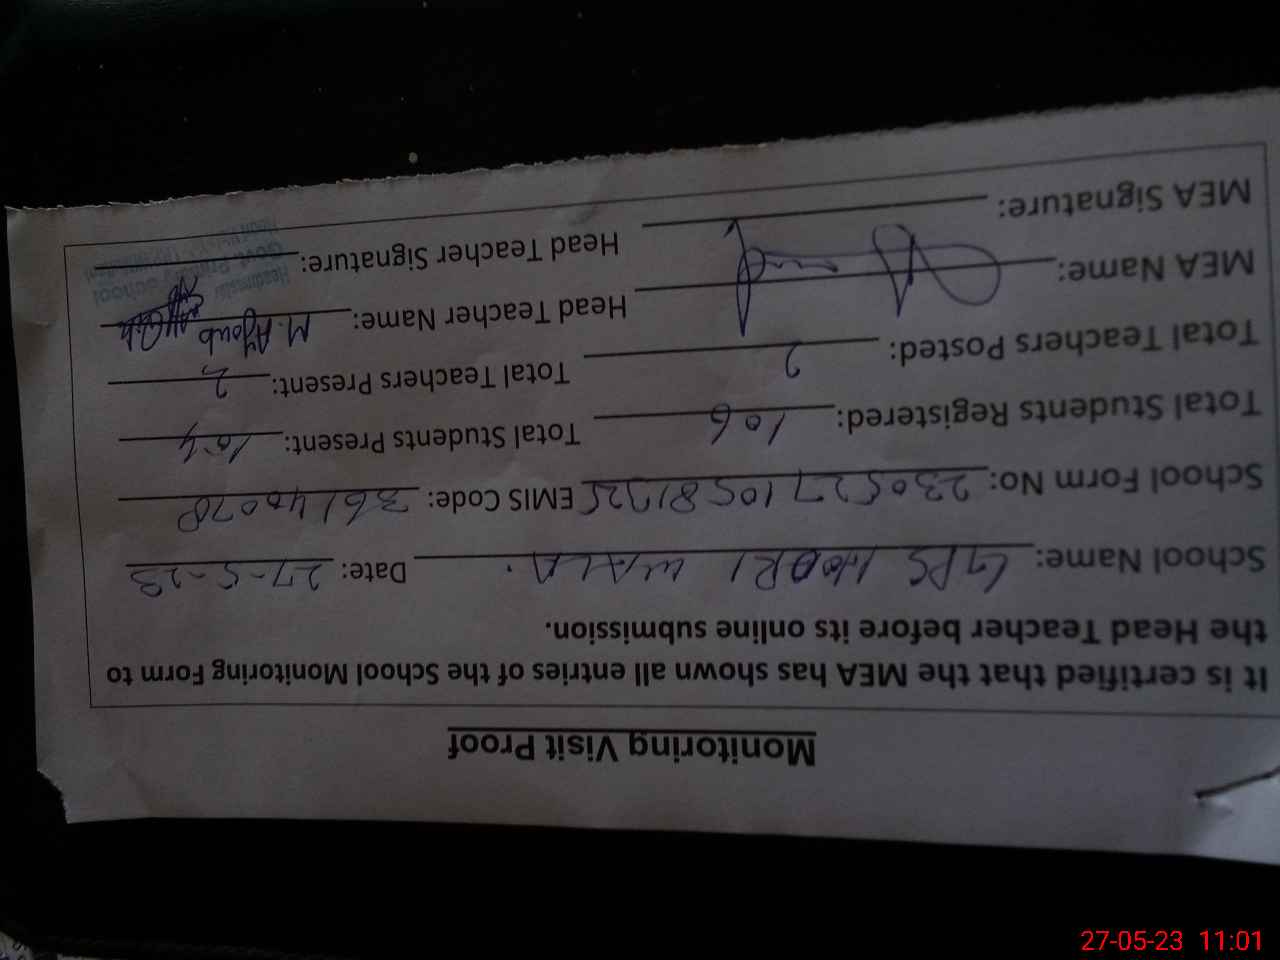 Monitoring Visit Proof
It is certified that the MEA has shown all entries of the School Monitoring Form to
the Head Teacher before its online submission.
School Name: GPS NOORI WALA. Date: 27-5-23
School Form No: EMIS Code: 36140078
Total Students Registered: 106 Total Students Present: 104
Total Teachers Posted: 2 Total Teachers Present: 2
MEA Name: Head Teacher Name: M. Ayoub
MEA Signature: Head Teacher Signature:
Govt. Primary School
27-05-23 11:01